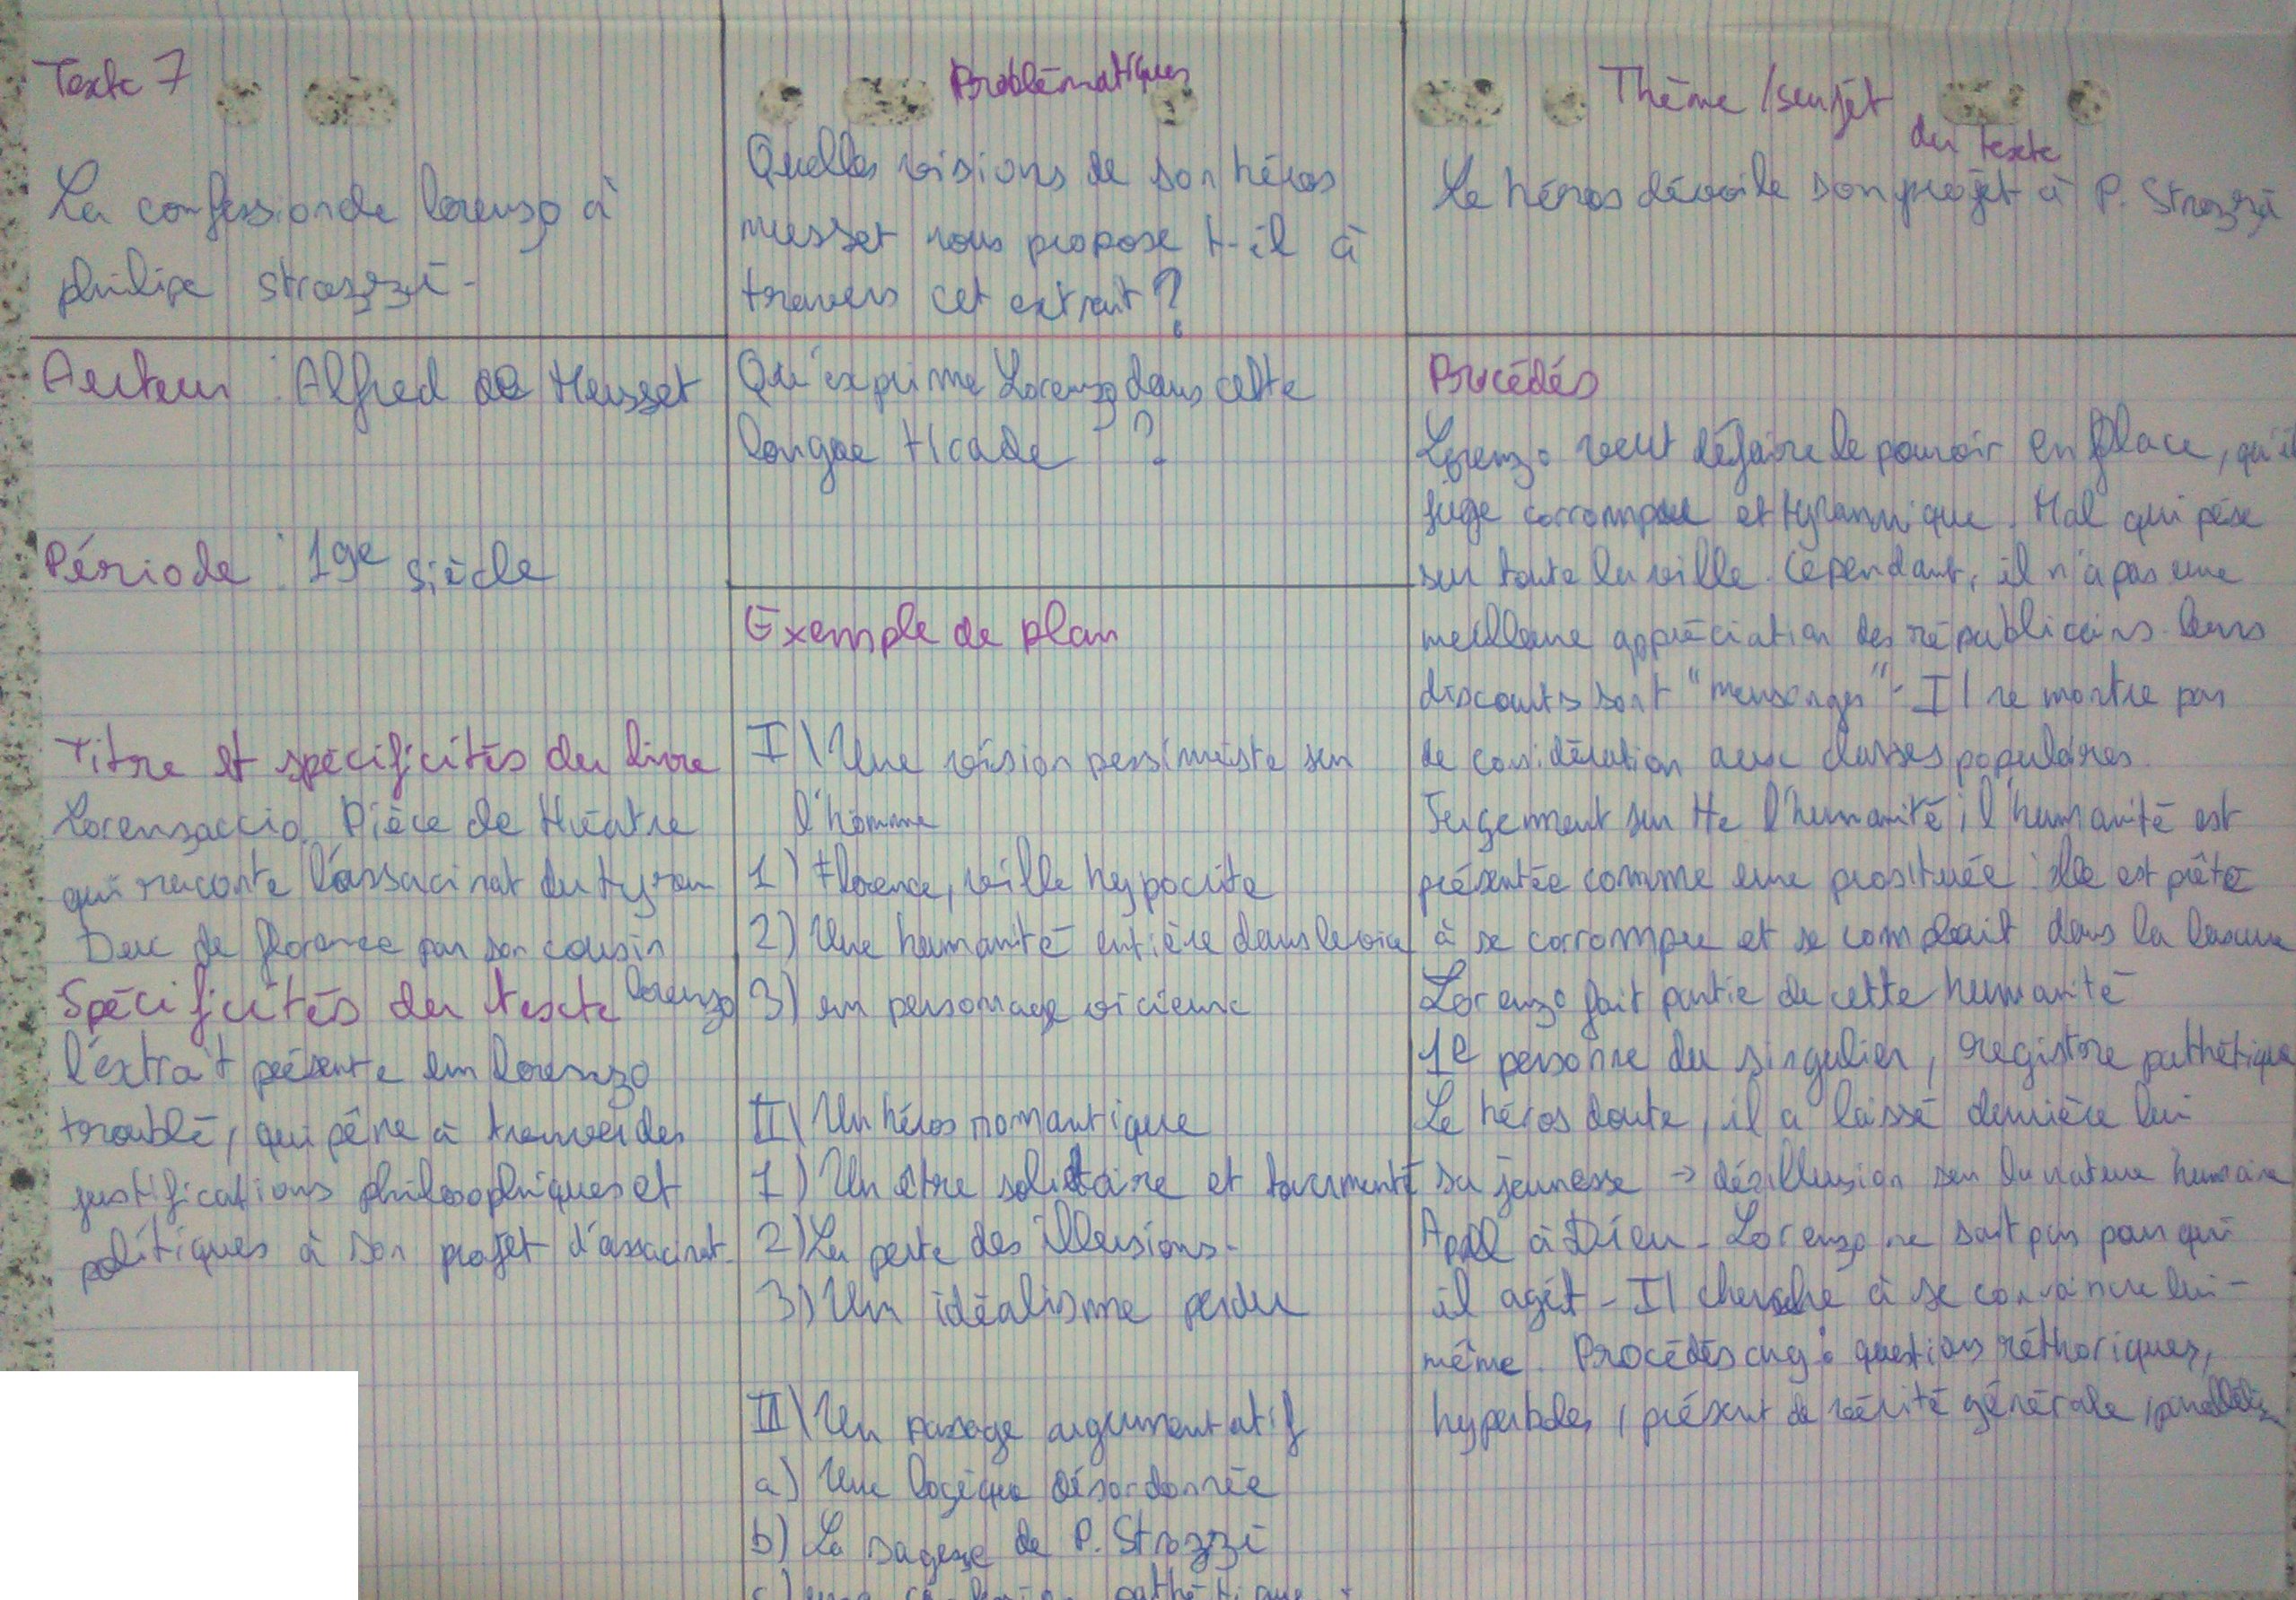 Texte 7
La confession de lorenzo à
philipe strozzi -
Auteur : Alfred de Musset
Période : 19e siècle
Titre et spécificités du livre
Lorenzaccio. Pièce de théatre
qui raconte l'assacinat du tyran
Duc de florence par son cousin
lorenzo
Spécificités du texte
l'extrait présente un lorenzo
troublé, qui pêne à trouver des
justifications philosophiques et
politiques à son projet d'assacinat.
Problématiques
Quelles visions de son héros
musset nous propose t-il à
travers cet extrait ?
Qu'exprime Lorenzo dans cette
longue tirade ?
Exemple de plan
I\ Une vision pessimiste sur
l'homme
1) Florence, ville hypocrite
2) Une humanité entière dans le vice
3) un personnage vicieux
II\ Un héros romantique
1) Un être solitaire et tourmenté
2) La perte des illusions -
3) Un idéalisme perdu
III\ Un passage argumentatif
a) Une logique désordonnée
b) La sagesse de P. Strozzi
c) une pathétique
Thème / sujet
du texte
Le héros dévoile son projet à P. Strozzi
Procédés
Lorenzo veut défaire le pouvoir en place, qu'il
juge corrompu et tyrannique. Mal qui pèse
sur toute la ville. Cependant, il n'a pas une
meilleure appréciation des républicains. leurs
discourts sont "mensonges" - Il ne montre pas
de considération aux classes populaires.
Jugement sur tte l'humanité ; l'humanité est
présentée comme une prosituée : elle est prête
à se corrompre et se complait dans la luxure
Lorenzo fait partie de cette humanité
1e personne du singulier, registre pathétique
Le héros doute, il a laissé derrière lui
sa jeunesse → désillusion sur la nature humaine
Appel à Dieu - Lorenzo ne sait pas pour qui
il agit - Il cherche à se convaincre lui -
même. Procédés arg : questions réthoriques,
hyperboles, présent de vérité générale,